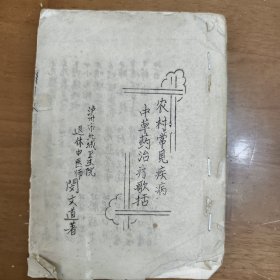 农村常见疾病
中草药治疗歌括
泸州市北城卫生院
退休中医师
闵文道著